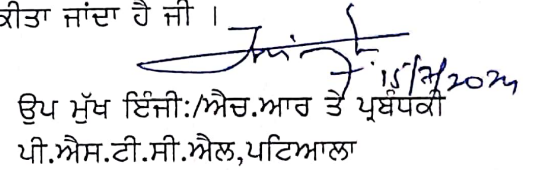 ਕੀਤਾ ਜਾਂਦਾ ਹੈ ਜੀ ।
15/7/2024
ਉਪ ਮੁੱਖ ਇੰਜੀ:/ਐਚ.ਆਰ ਤੇ ਪ੍ਰਬੰਧਕੀ
ਪੀ.ਐਸ.ਟੀ.ਸੀ.ਐਲ,ਪਟਿਆਲਾ